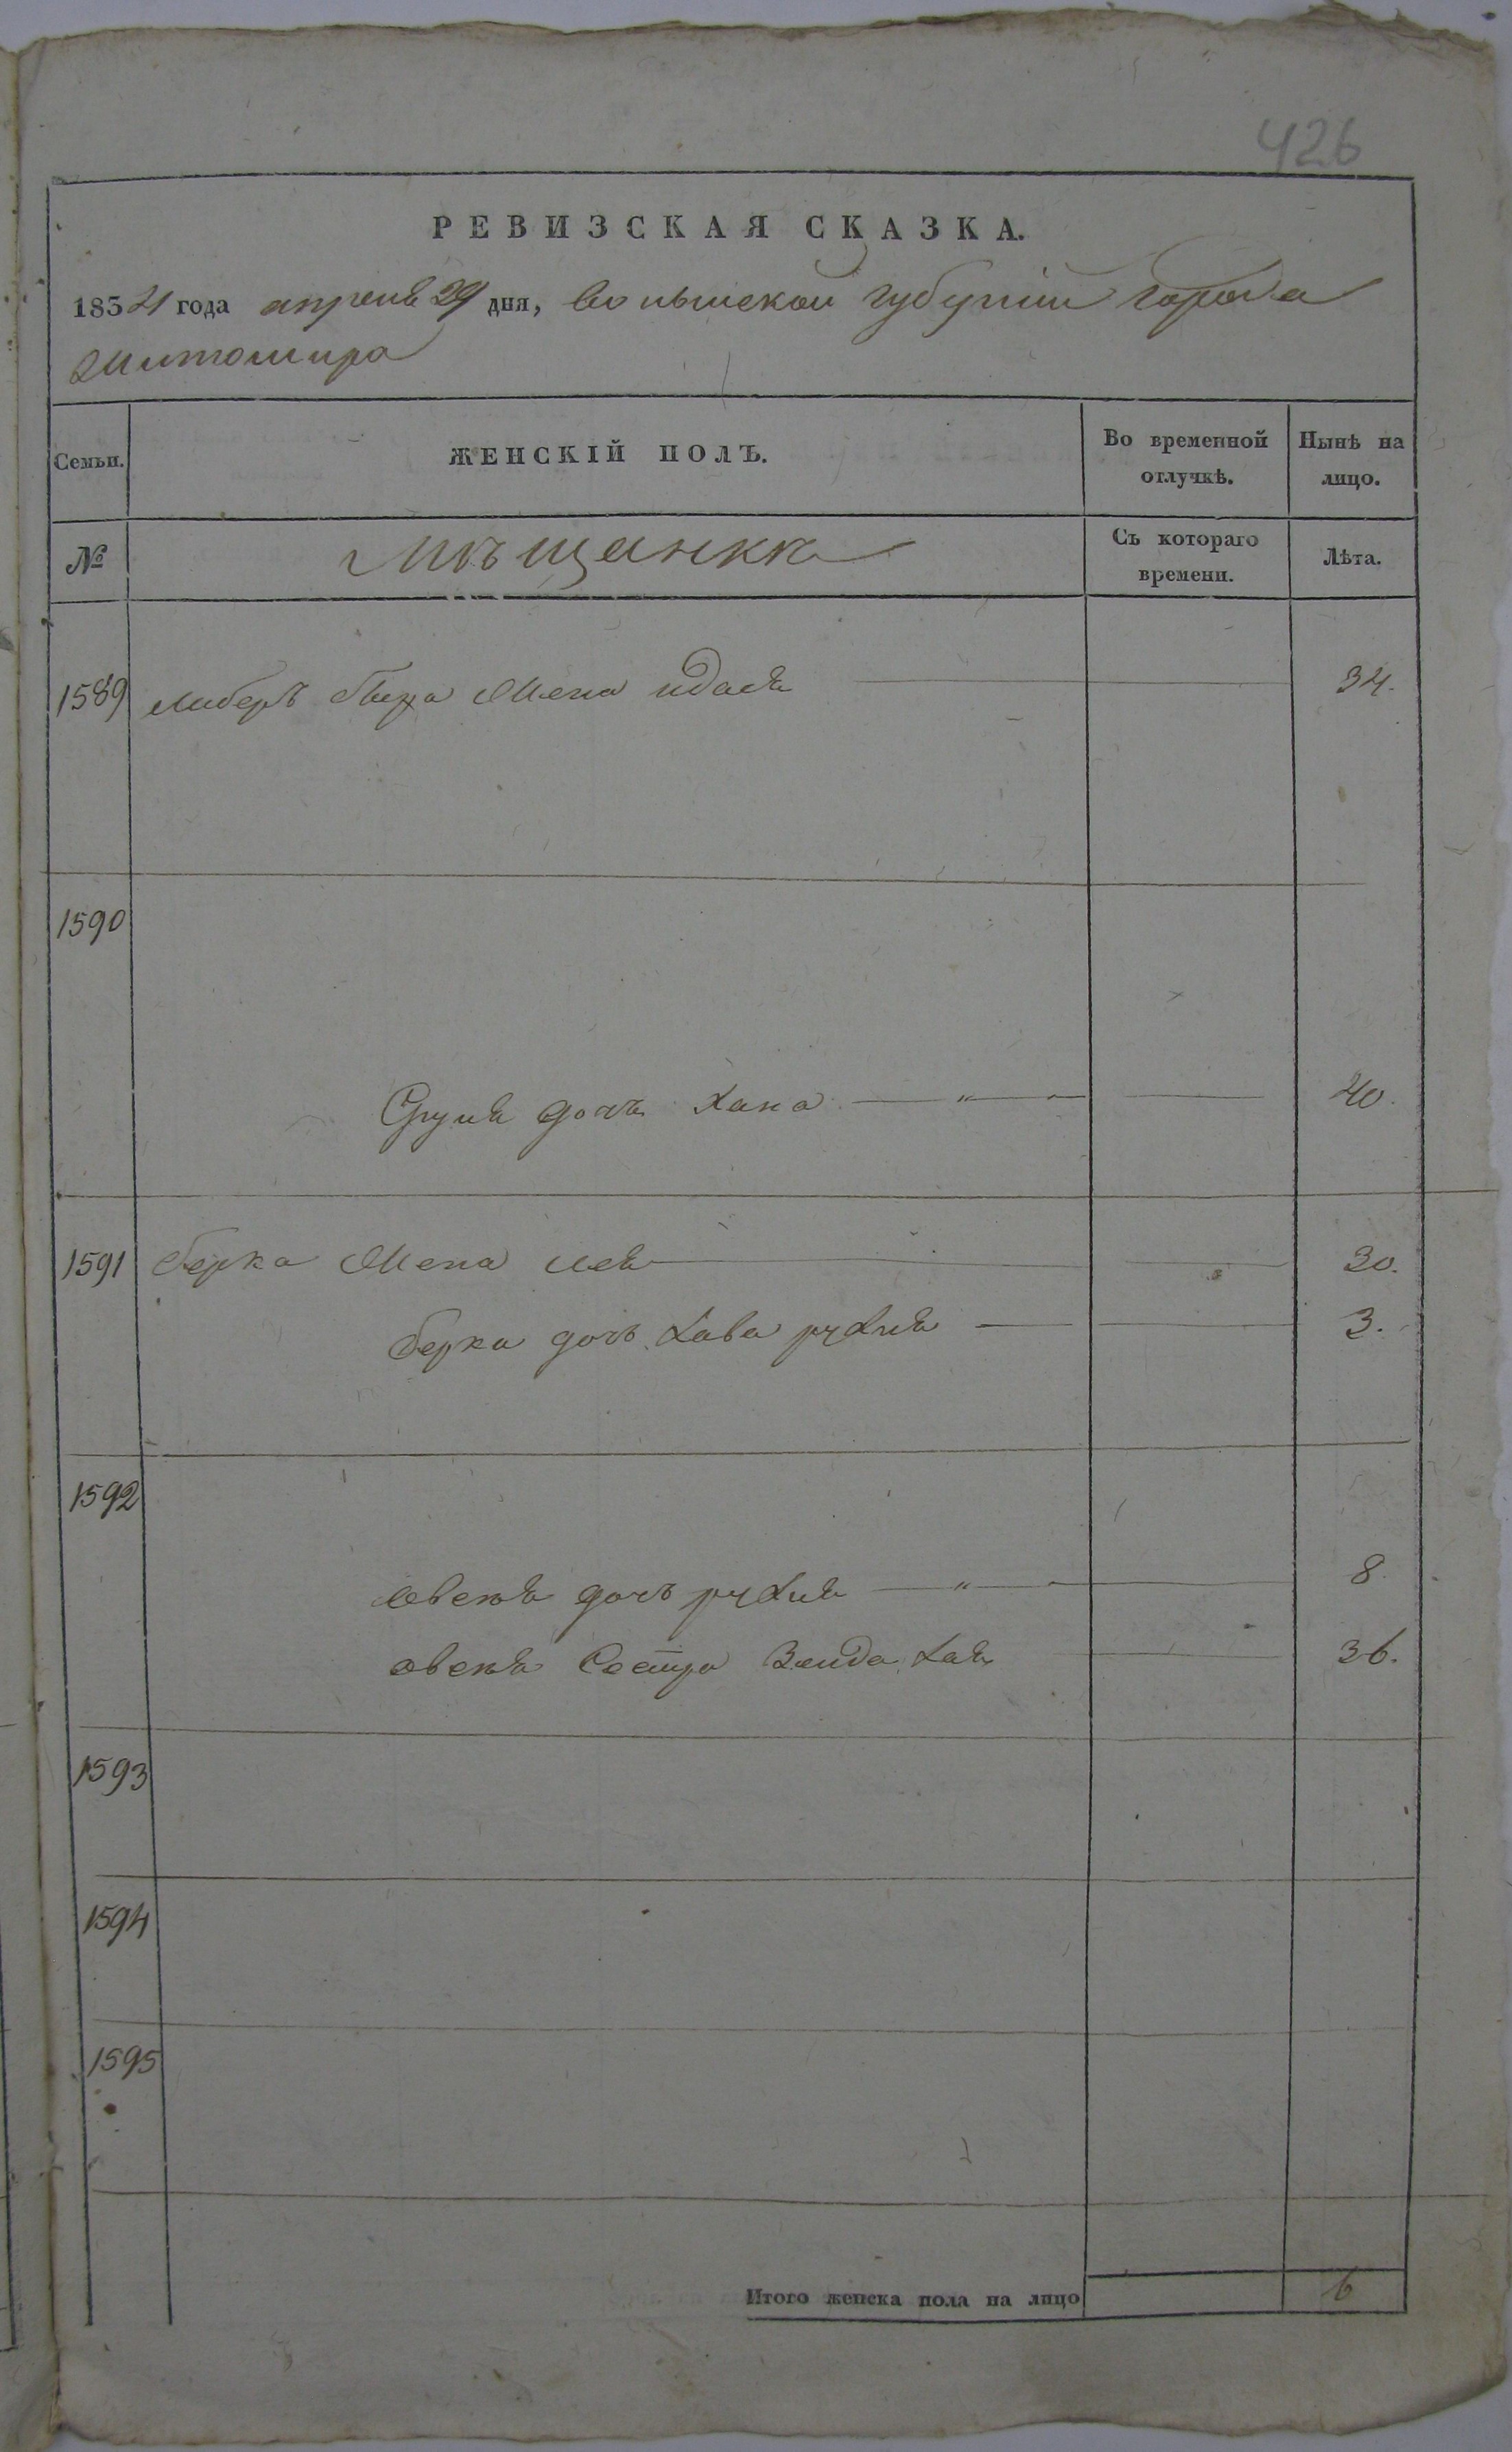 426
РЕВИЗСКАЯ СКАЗКА.
1834 года апреля 29 дня, волынской губернии города
житомира
Семьи.
ЖЕНСКІЙ ПОЛЪ.
Во временной отлучкѣ.
Нынѣ на лицо.
№
Мѣщанки
Съ котораго времени.
Лѣта.
1589 жена 34.
1590
дочь хана — „ — 40.
1591 берка жена лея 30.
берка дочь хава рухля 3.
1592
дочь рухля — „ — 8.
Сестра хая 36.
1593
1594
1595
Итого женска пола на лицо 6